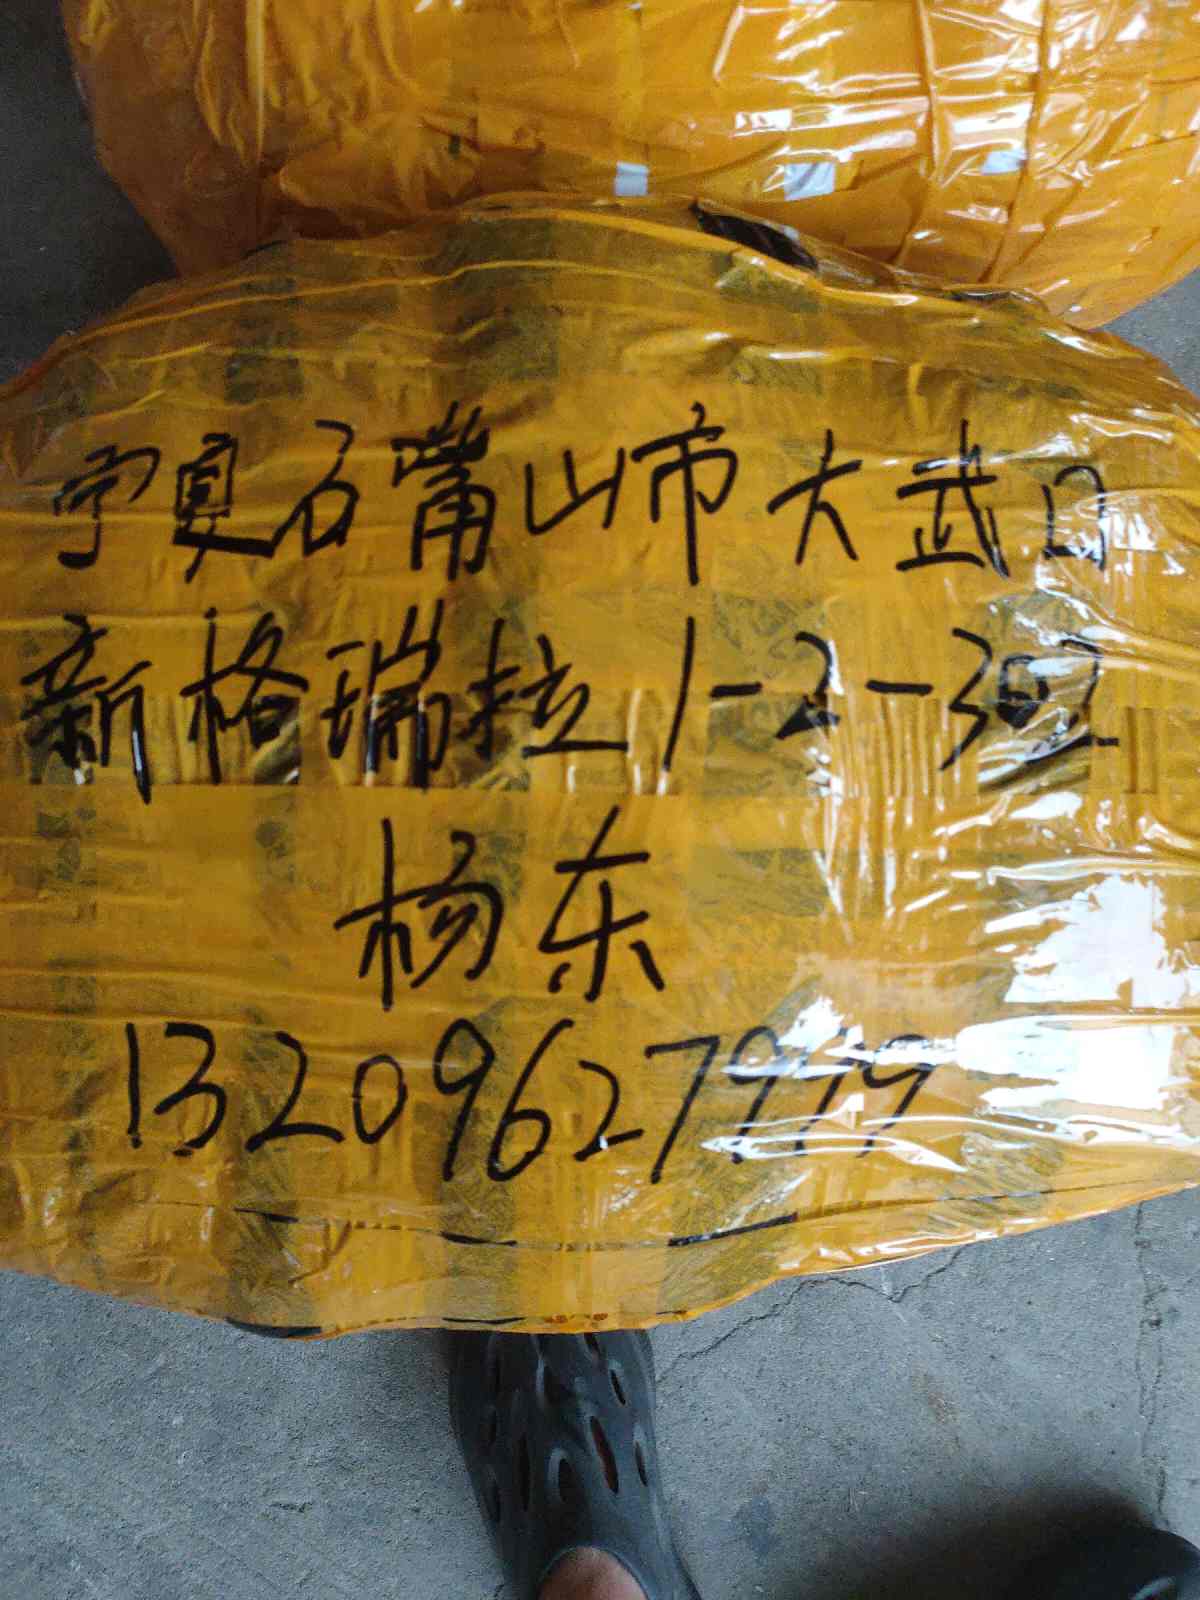 宁夏石嘴山市大武口
新格瑞拉1-2-302
杨东
13209627979